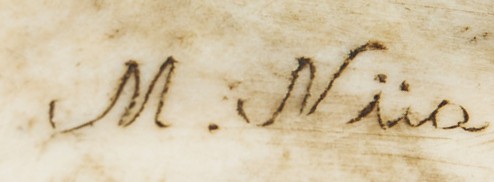 M. Niia